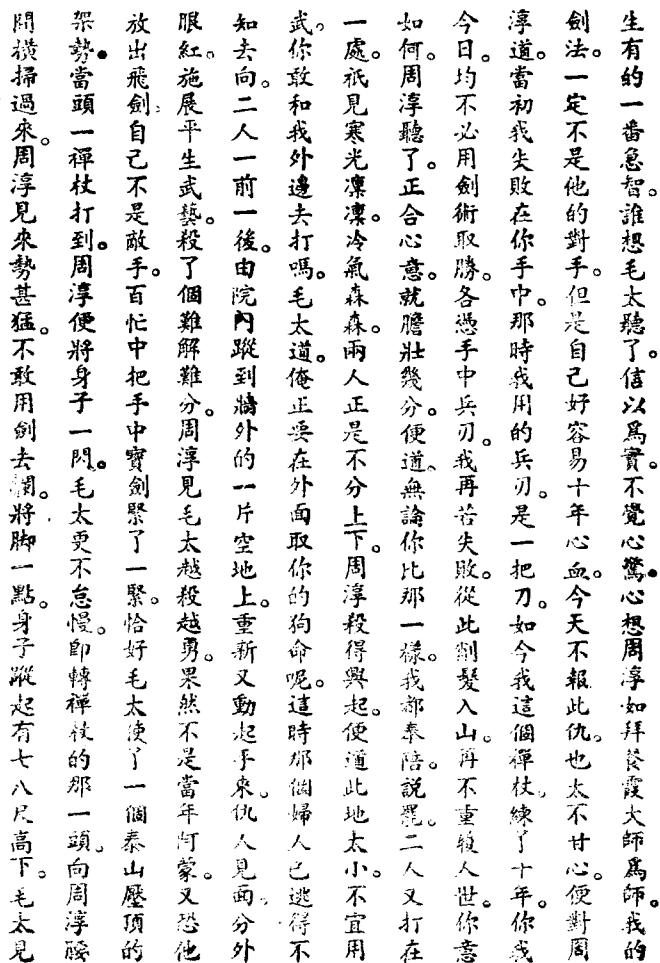 生有的一番急智。誰想毛太聽了。信以爲實。不覺心驚。心想周淳如拜餐霞大師爲師。我的
劍法。一定不是他的對手。但是自己好容易十年心血。今天不報此仇。也太不甘心。便對周
淳道。當初我失敗在你手中。那時我用的兵刃。是一把刀。如今我這個禪杖。練了十年。你我
今日。均不必用劍術取勝。各憑手中兵刃。我再若失敗。從此削髮入山。再不重復人世。你意
如何。周淳聽了。正合心意。就膽壯幾分。便道。無論你比那一樣。我都奉陪。說罷。二人又打在
一處。祇見寒光凜凜。冷氣森森。兩人正是不分上下。周淳殺得興起。便道此地太小。不宜用
武。你敢和我外邊去打嗎。毛太道。俺正要在外面取你的狗命呢。這時那個婦人已逃得不
知去向。二人一前一後。由院內蹤到牆外的一片空地上。重新又動起手來。仇人見面。分外
眼紅。施展平生武藝。殺了個難解難分。周淳見毛太越殺越勇。果然不是當年阿蒙。又恐他
放出飛劍。自己不是敵手。百忙中把手中寶劍緊了一緊。恰好毛太使了一個泰山壓頂的
架勢。當頭一禪杖打到。周淳便將身子一閃。毛太更不怠慢。卽轉禪杖的那一頭。向周淳腰
間橫掃過來。周淳見來勢甚猛。不敢用劍去攔。將脚一點。身子蹤起有七八尺高下。毛太見